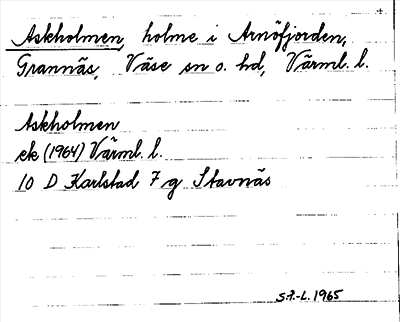 Askholmen, holme i Arnöfjorden,
Grannäs, Väse sn o. hd, Värml. l.
Askholmen
ek (1964) Värml. l.
10 D Karlstad 7 g Stavnäs
S.F.-L. 1965